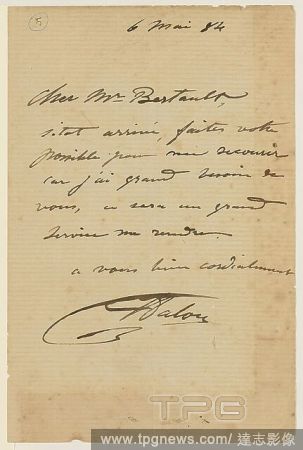 5
6 Mai 84
Cher Mr Bertault,
sitot arrivé, faites votre
possible pour me secourir
car j'ai grand besoin de
vous, ce sera un grand
service me rendre.
a vous bien cordialement
Dalou
TPG
www.tpgnews.com/達志影像